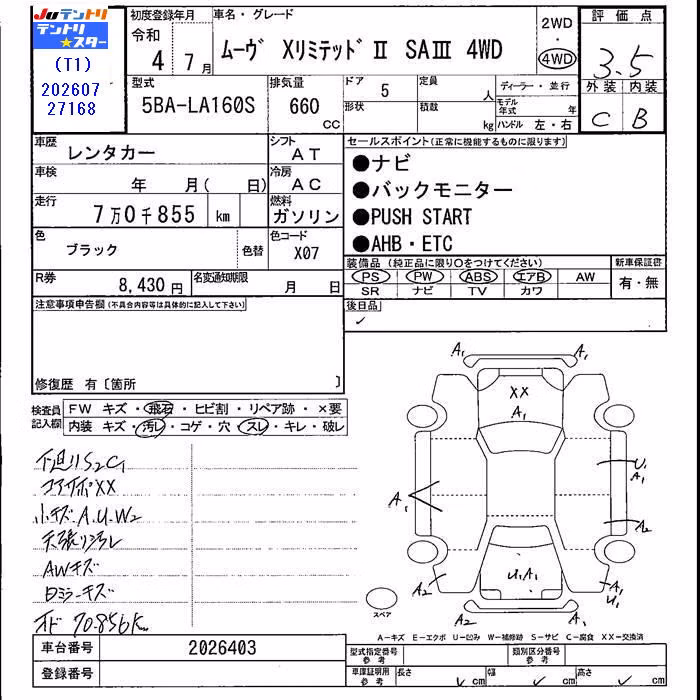 Juテントリ
テントリ
★スター
(T1)
202607
27168
初度登録年月
令和
4 7月
車名・グレード
ムーヴ XリミテッドⅡ SAⅢ 4WD
2WD
・
4WD
評価点
3.5
外装 内装
C B
型式
5BA-LA160S
排気量
660
cc
ドア 5
形状
定員 人
積数 kg
ディーラー・並行
モデル年式 年
ハンドル 左・右
車歴
レンタカー
シフト
AT
車検
年 月( 日)
冷房
AC
走行
7万0千855 km
燃料
ガソリン
色
ブラック
色替
色コード
X07
R券
8,430円
名変通知期限
月 日
セールスポイント(正常に機能するものに限ります)
●ナビ
●バックモニター
●PUSH START
●AHB・ETC
装備品(純正品に限り○をつけてください)
PS PW ABS エアB AW
SR ナビ TV カワ
新車保証書
有・無
後日品
✓
注意事項申告欄(不具合内容等は具体的に記入して下さい)
修復歴 有〔箇所 〕
検査員
記入欄
FW キズ・飛石・ヒビ割・リペア跡・×要
内装 キズ・汚レ・コゲ・穴・スレ・キレ・破レ
下廻りS2C1
コアサポXX
小キズ.A.U.W2
天張り汚レ
AWキズ
日ミラーキズ
オド 70.856K
A1 A1
XX
A1
A1
U1
A1
A2
U1 A1
A2
A2
A2
U1
A1
スペア
A-キズ E-エクボ U-凹み W-補修跡 S-サビ C-腐食 XX-交換済
車台番号
2026403
登録番号
型式指定番号
参考
類別区分番号
参考
車庫証明用
参考
長さ ✓ cm
幅 ✓ cm
高さ ✓ cm